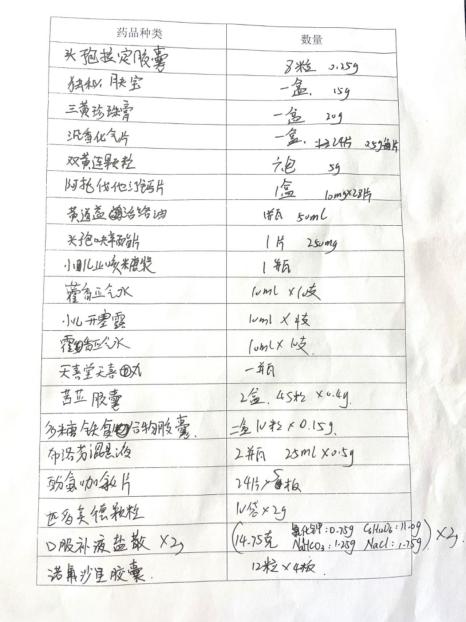 药品种类 数量
头孢拉定胶囊 8粒 0.25g
肤宝 一盒. 15g
三黄珍珠膏 一盒 20g
沉香化气片 一盒. 24片 0.5g每片
双黄连颗粒 六包 5g
阿托伐他汀钙片 1盒 10mg×28片
黄道益活络油 1瓶 50ml
头孢呋辛酯片 1片 250mg
小儿止咳糖浆 1瓶
藿香正气水 10ml×10支
小儿开塞露 10ml×4支
藿香正气水 10ml×10支
天喜堂天喜丸 一瓶
苦参胶囊 2盒. 45粒×0.4g
多糖铁复合物胶囊. 二盒 10粒×0.15g.
布洛芬混悬液 2瓶 25ml×0.5g
酚氨咖敏片 24片/板
匹多莫德颗粒 10袋×2g
口服补液盐散×2g (14.75克 氯化钾:0.75g C6H12O6:11.0g NaHCO3:1.25g NaCl:1.75g)×2.
诺氟沙星胶囊. 12粒×4板.